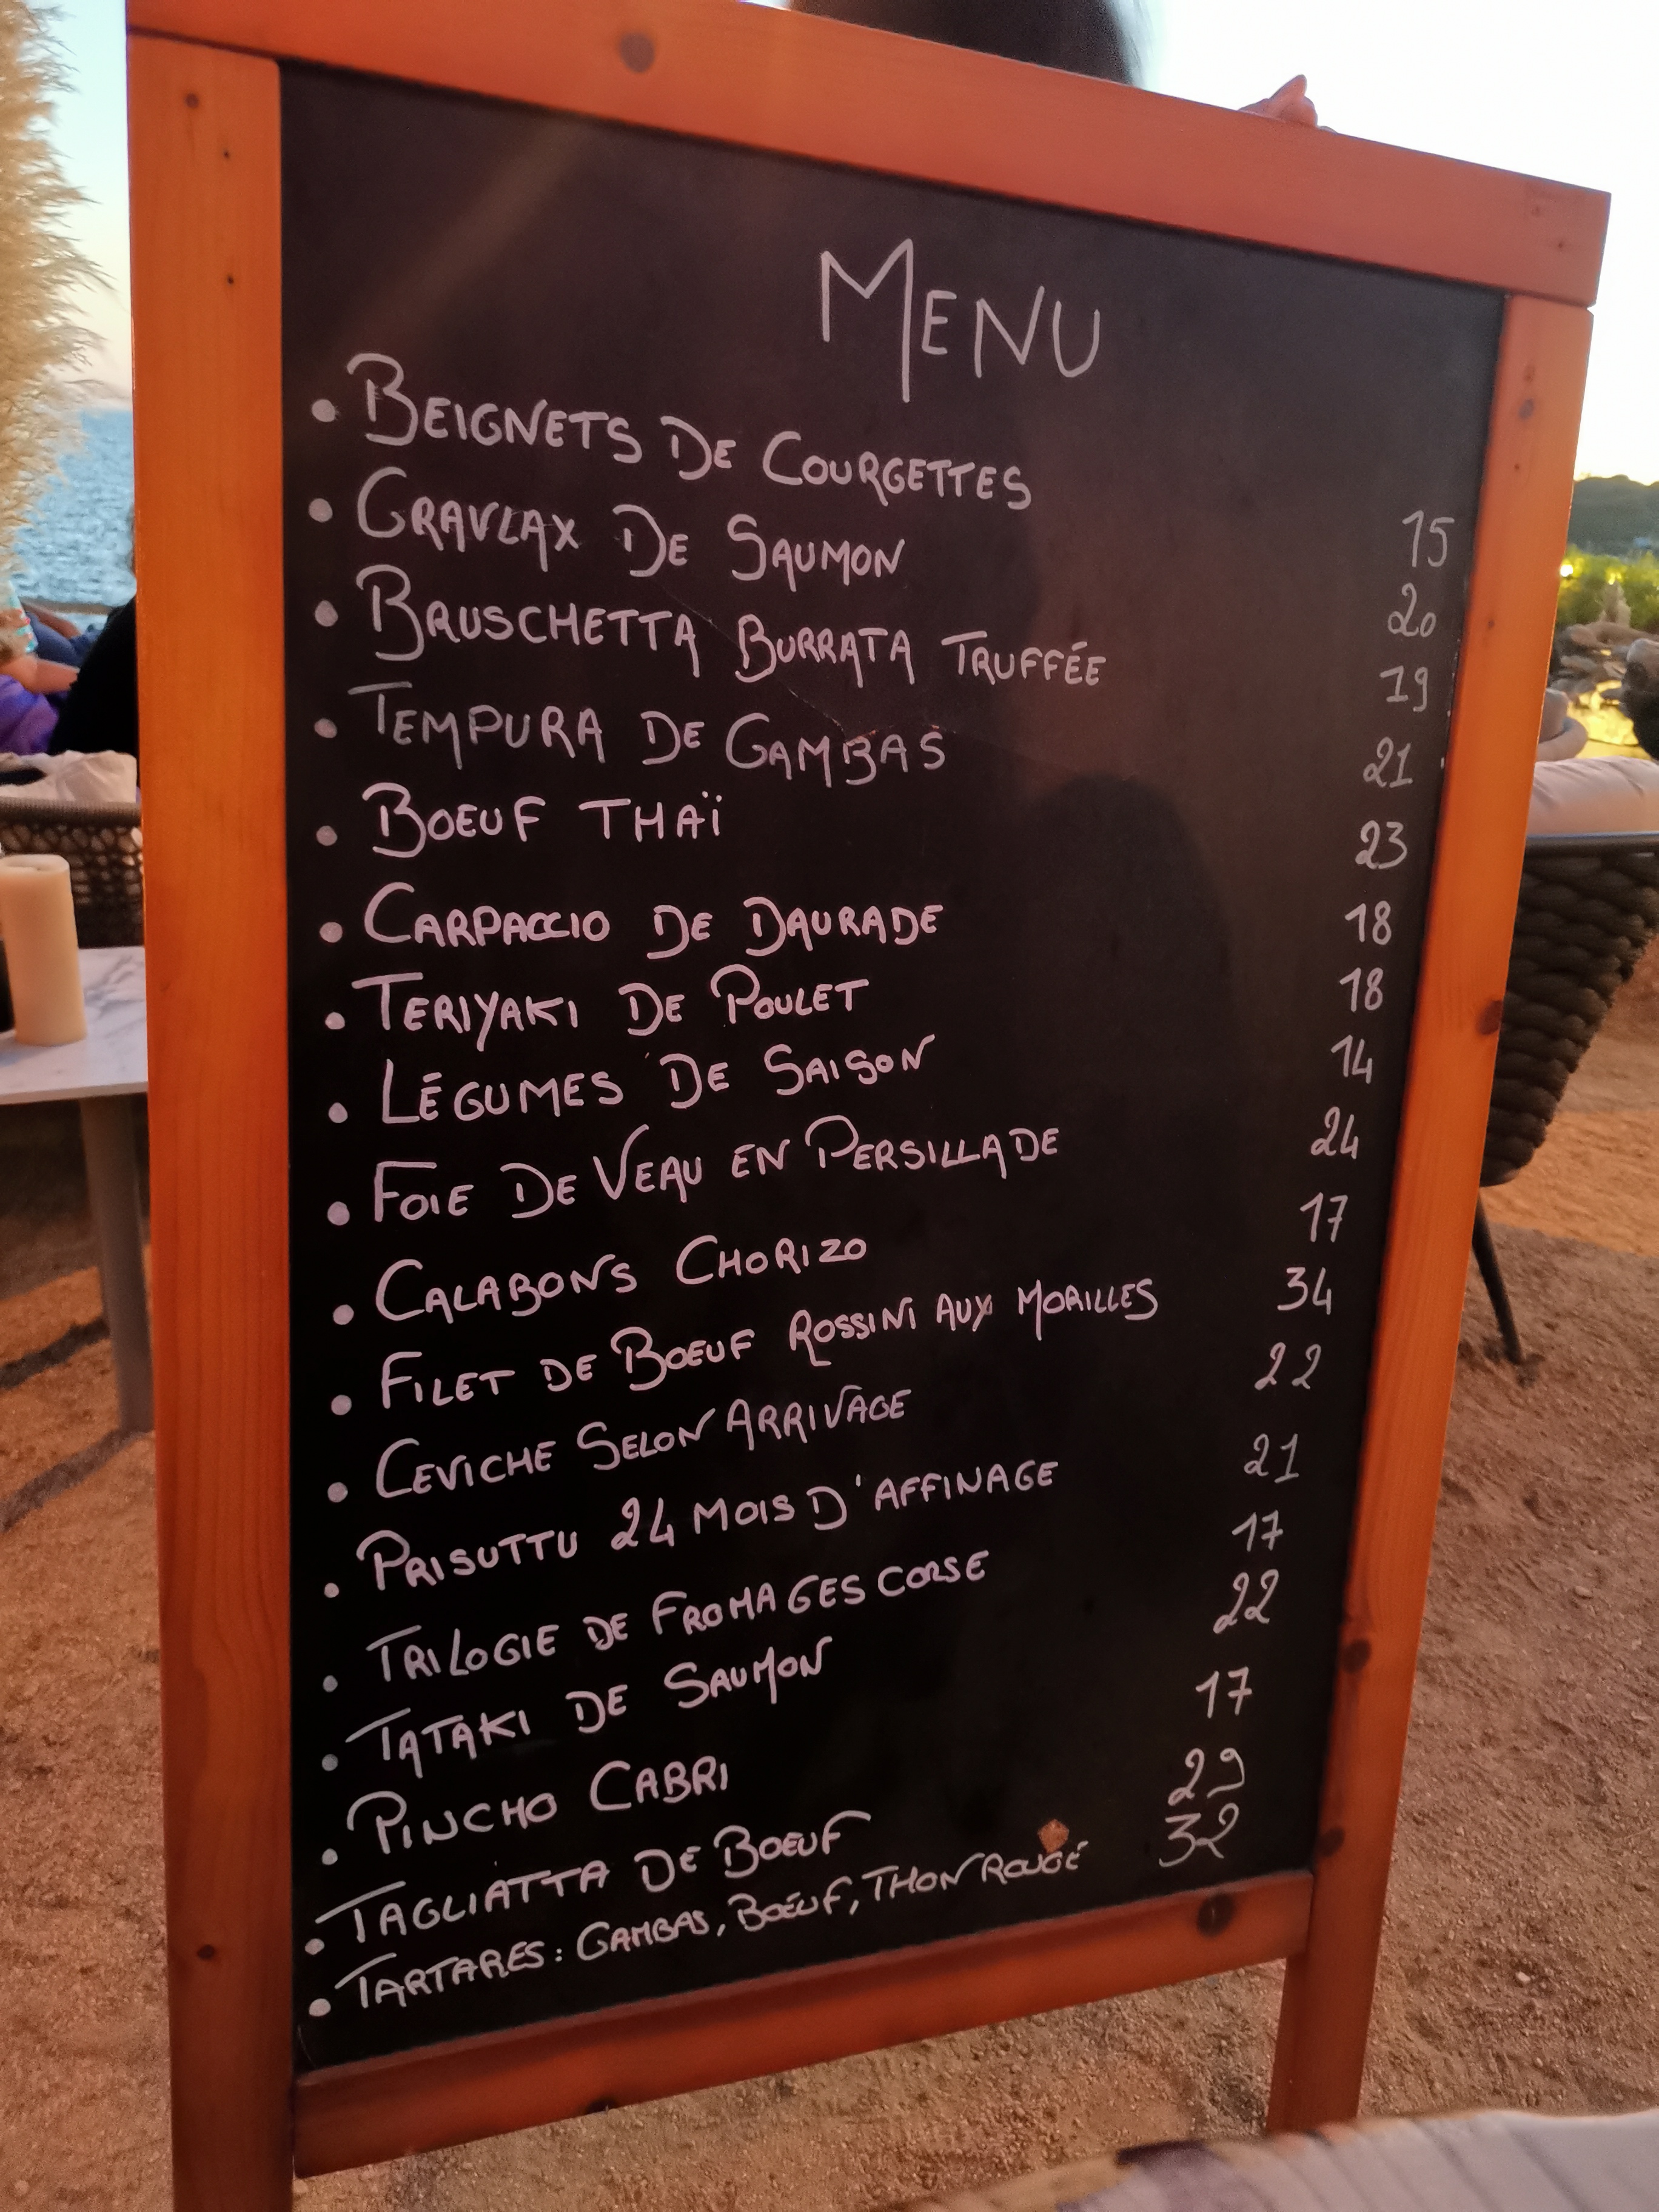 MENU
• BEIGNETS DE COURGETTES 15
• GRAVLAX DE SAUMON 20
• BRUSCHETTA BURRATA TRUFFÉE 19
• TEMPURA DE GAMBAS 21
• BOEUF THAÏ 23
• CARPACCIO DE DAURADE 18
• TERIYAKI DE POULET 18
• LÉGUMES DE SAISON 14
• FOIE DE VEAU EN PERSILLADE 24
• CALABONS CHORIZO 17
• FILET DE BOEUF ROSSINI AUX MORILLES 34
• CEVICHE SELON ARRIVAGE 22
• PRISUTTU 24 MOIS D'AFFINAGE 21
• TRILOGIE DE FROMAGES CORSE 17
• TATAKI DE SAUMON 22
• PINCHO CABRI 17
• TAGLIATTA DE BOEUF 29
• TARTARES : GAMBAS, BOEUF, THON ROUGE 32